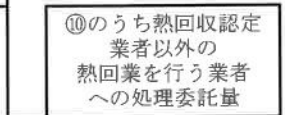 ⑩のうち熱回収認定
業者以外の
熱回業を行う業者
への処理委託量